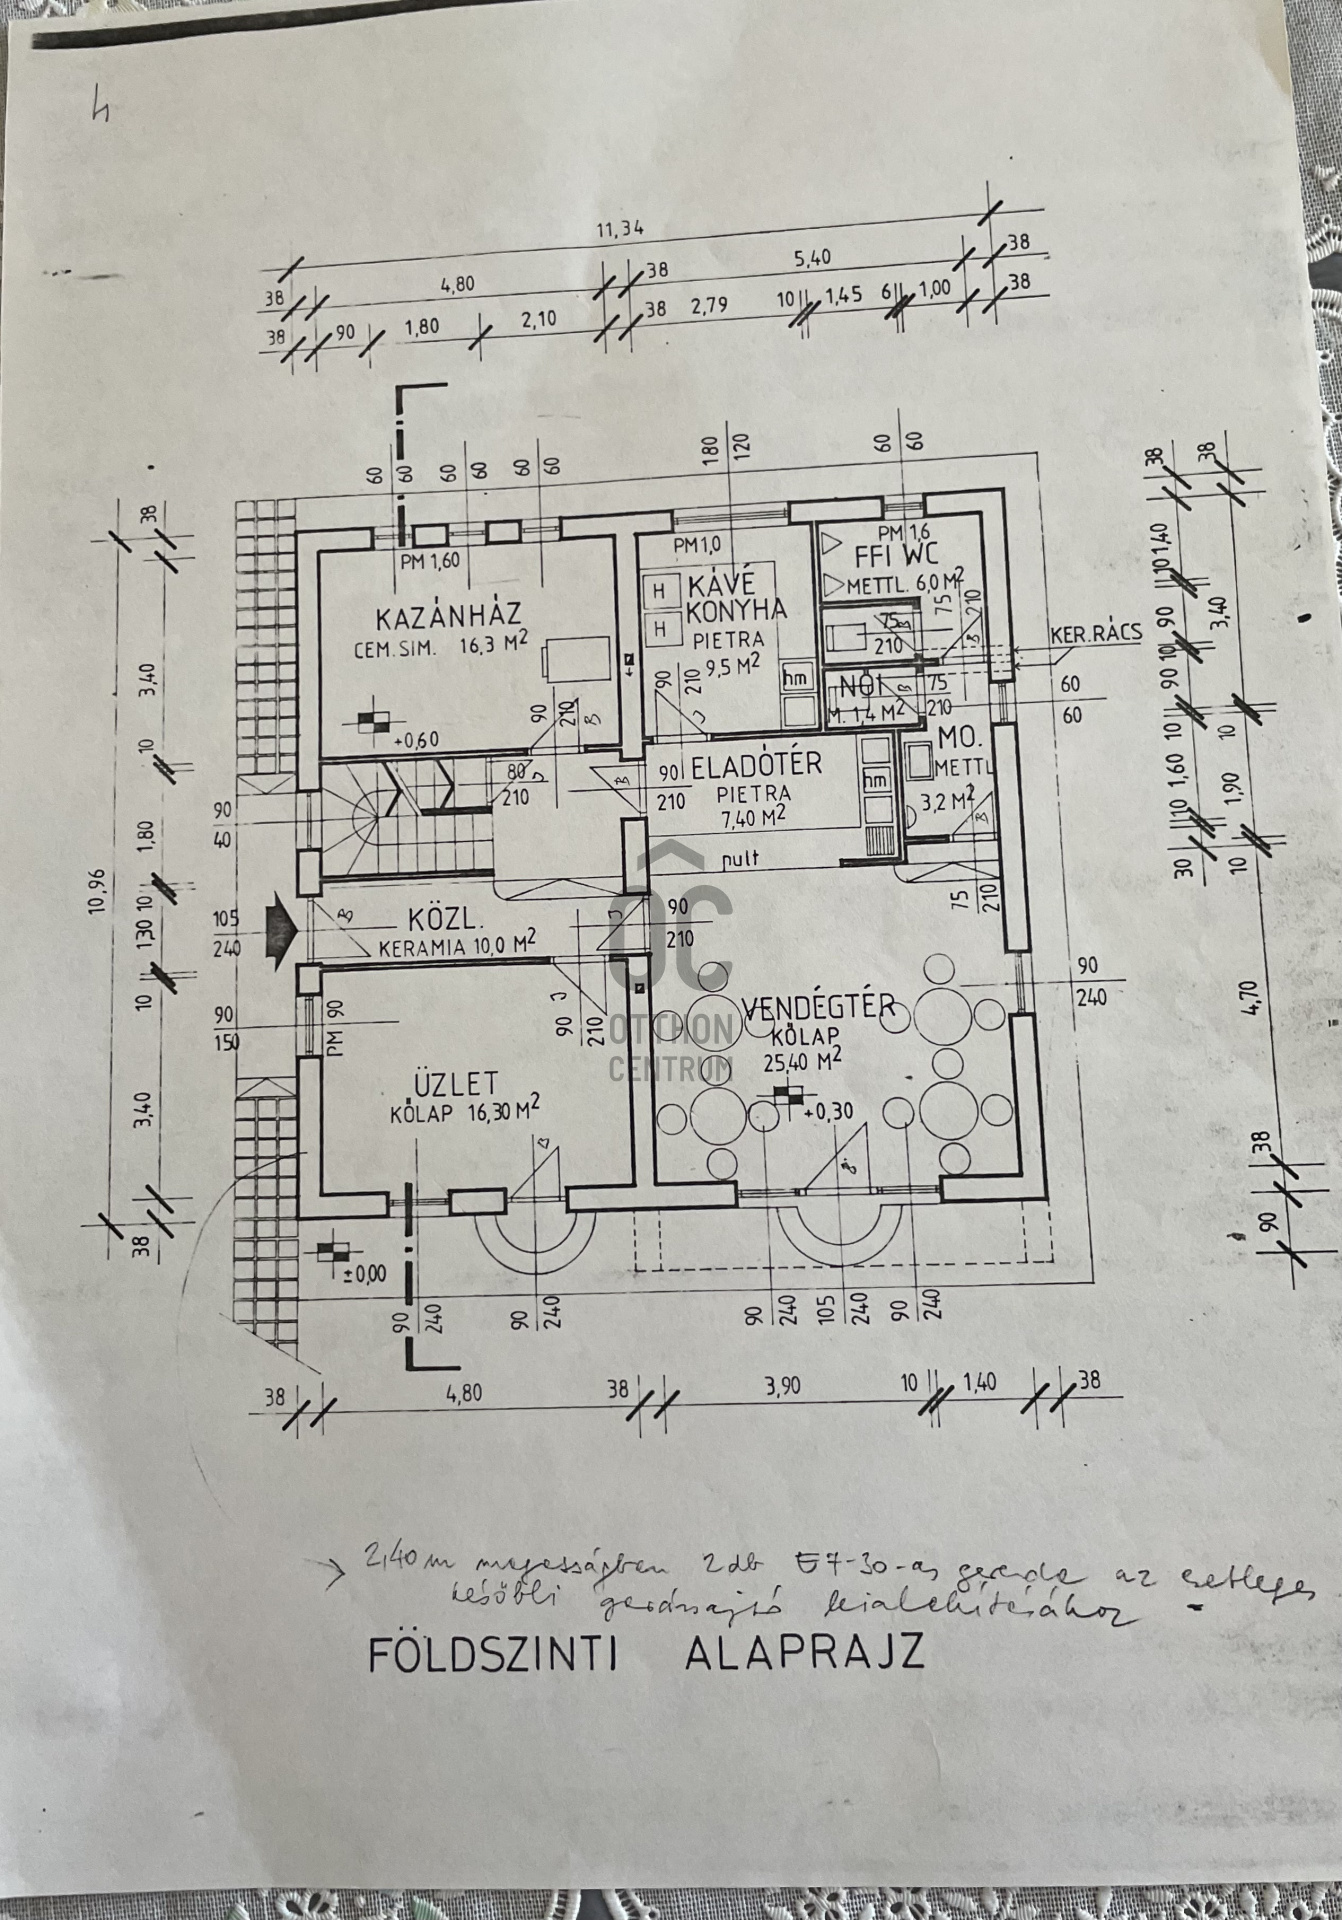 4
11,34
38
5,40
38
38
4,80
38
2,79
10
1,45
6
1,00
38
38
90
1,80
2,10
60
60
60
60
60
60
180
120
60
60
38
38
PM 1,60
PM 1,0
PM 1,6
FFI WC
METTL. 6,0 M2
KAZÁNHÁZ
CEM. SIM. 16,3 M2
H
H
KÁVÉ
KONYHA
PIETRA
9,5 M2
75
210
75
210
KER. RÁCS
10
1,40
90
3,40
10
90
90
210
90
210
hm
NŐI
M. 1,4 M2
75
210
60
60
+0,60
38
3,40
10
80
210
90
210
ELADÓTÉR
PIETRA
7,40 M2
hm
MO.
METTL
3,2 M2
10
1,60
10
10
1,90
30
10
90
40
1,80
pult
75
210
10,96
105
240
10
1,30
10
KÖZL.
KERAMIA 10,0 M2
90
210
90
150
PM 90
90
210
OC
OTTHON
CENTRUM
VENDÉGTÉR
KŐLAP
25,40 M2
+0,30
90
240
4,70
3,40
ÜZLET
KŐLAP 16,30 M2
38
38
90
±0,00
90
240
90
240
90
240
105
240
90
240
38
4,80
38
3,90
10
1,40
38
2,40 m magasságban 2 db E7-30-as gerenda az esetleges
későbbi garázsajtó kialakításához
FÖLDSZINTI ALAPRAJZ